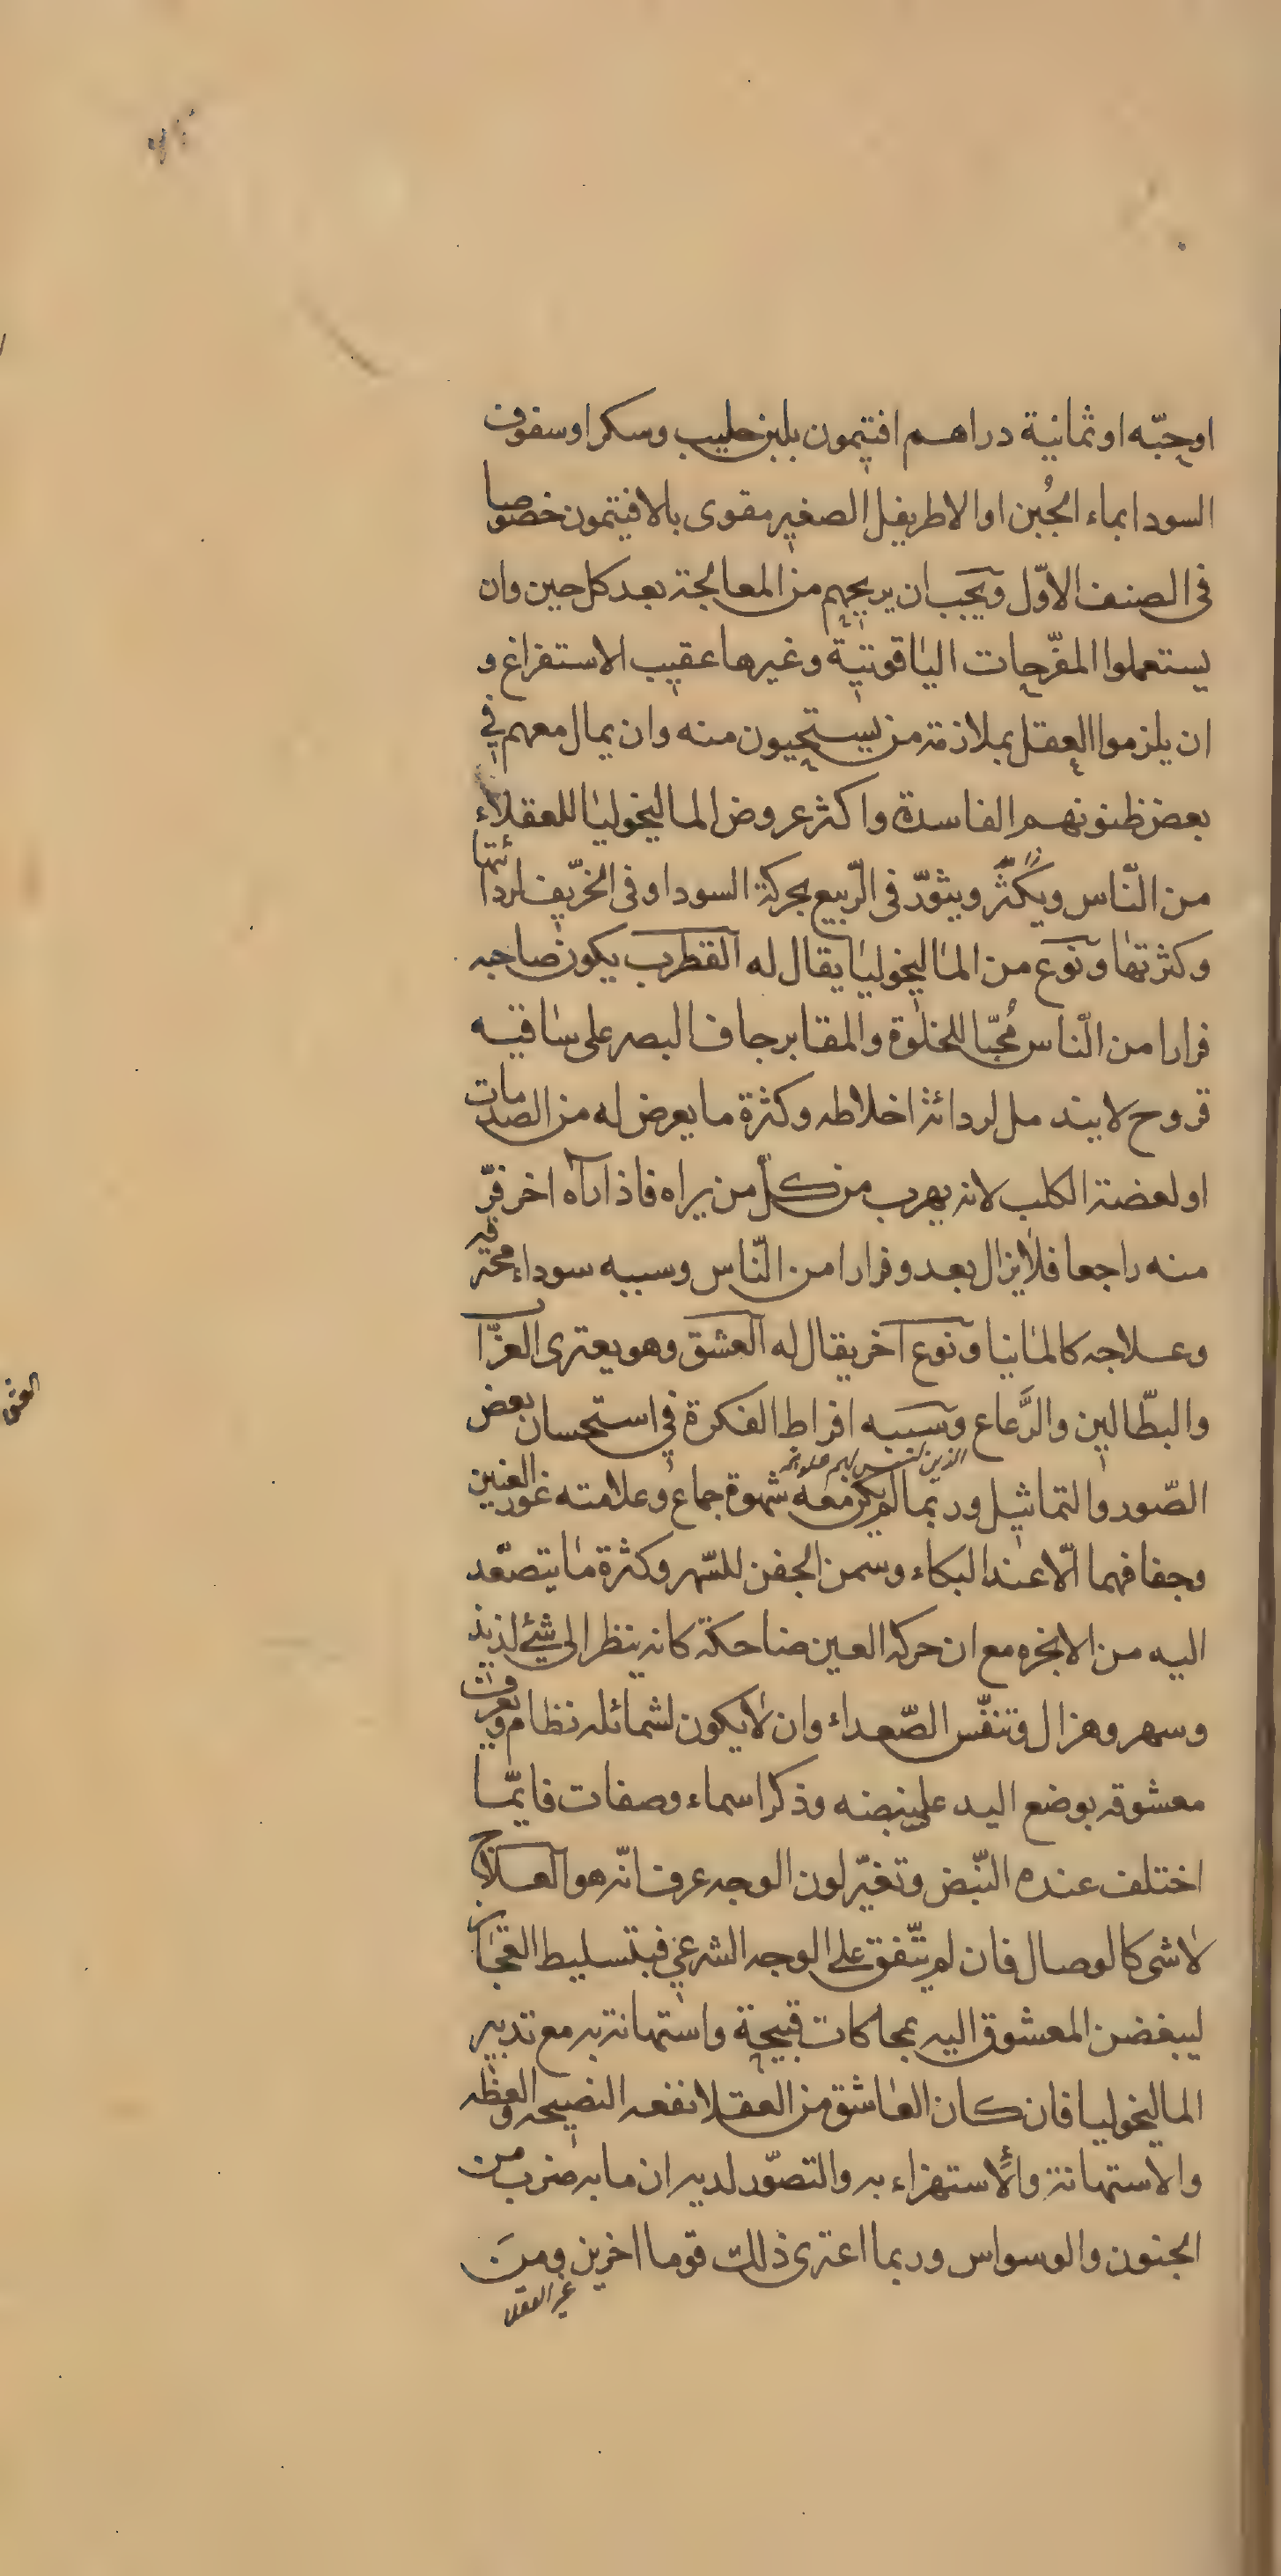 او حبّه او ثمانية دراهم افتيمون بلبن حليب وسكر او سفوف
السودا بماء الجُبن او الاطريفل الصغير مقوى بالافتيمون خصوصا
فى الصنف الاوّل ويجب ان يريحهم من المعالجة بعد كل حين وان
يستعملوا المفرّحات الياقوتية وغيرها عقيب الاستفراغ و
ان يلزموا العقل بملازمة من يستحيون منه وان يمال معهم في
بعض ظنونهم الفاسدة واكثر عروض الماليخوليا للعقلاء
من النّاس ويكثر ويثوّر فى الرّبيع بحركة السودا وفى الخريف لردائتها
وكثرتها ونوع من الماليخوليا يقال له القطرب يكون صاحبه
فرارا من النّاس مُحبّا للخلوة والمقابر جاف البصر على ساقيه
قروح لا يندمل لردائة اخلاطه وكثرة ما يعرض له من الصدمات
او لعضة الكلب لانه يهرب من كل من يراه فاذا رآه اخر فرّ
منه راجعا فلا يزال بعد وفرارا من النّاس وسببه سوداء محترقه
وعلاجه كالمانيا ونوع آخر يقال له العشق وهو يعترى العزّاب
والبطّالين والرَّعاع وسببه افراط الفكرة في استحسان بعض
الصّور والتماثيل وربما لم يكن معه شهوة جماع وعلامته غور العينين
وجفافهما الّا عند البكاء وسمن الجفن للسّهر وكثرة ما يتصعّد
اليه من الابخره مع ان حركه العين ضاحكة كانه ينظر الى شئ لذيذ
وسهر وهزال وتنفّس الصّعداء وان لا يكون لشمائله نظام ويعرف
معشوقه بوضع اليد على نبضه وذكر اسماء وصفات فايّما
اختلف عنده النّبض وتغيّر لون الوجه عرف انّه هو العلاج
لا شى كالوصال فان لم يتّفق على الوجه الشرعي فبتسليط العجائز
ليبغضن المعشوق اليه بمحاكات قبيحة واستهانة به مع تدبير
الماليخوليا فان كان العاشق من العقلا نفعه النصيحه والعظه
والاستهانة والاستهزاء به والتصوّر لديه ان ما به ضرب من
الجنون والوسواس وربما اعترى ذلك قوما اخرين ومن
غير العقلا
العشق